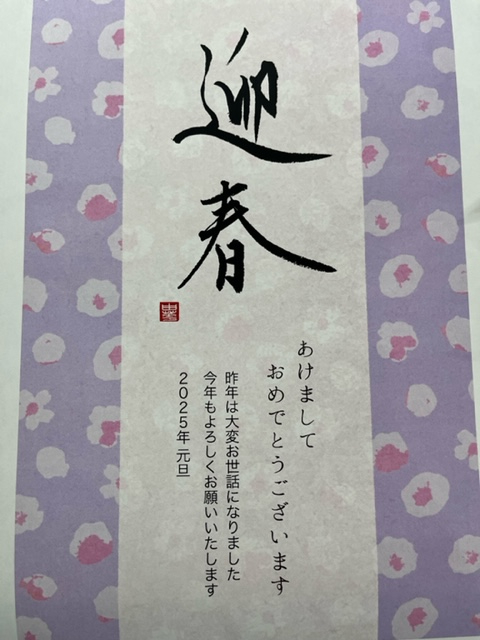 迎春
あけまして
おめでとうございます
昨年は大変お世話になりました
今年もよろしくお願いいたします
2025年 元旦